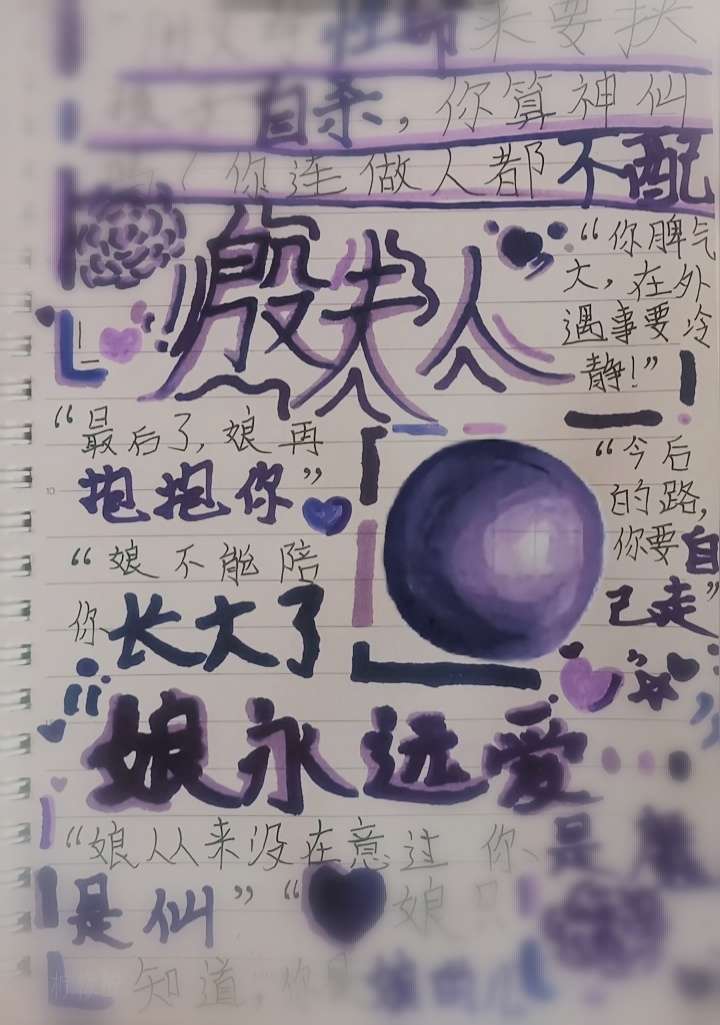 来要挟
自杀，你算神仙
你连做人都不配
殷夫人
“你脾气
大，在外
遇事要冷
静！”
“最后了，娘再
抱抱你”
“今后
的路，
你要自
己走”
“娘不能陪
你长大了
娘永远爱
“娘从从来没在意过 你是
是仙” “娘只
知道，你